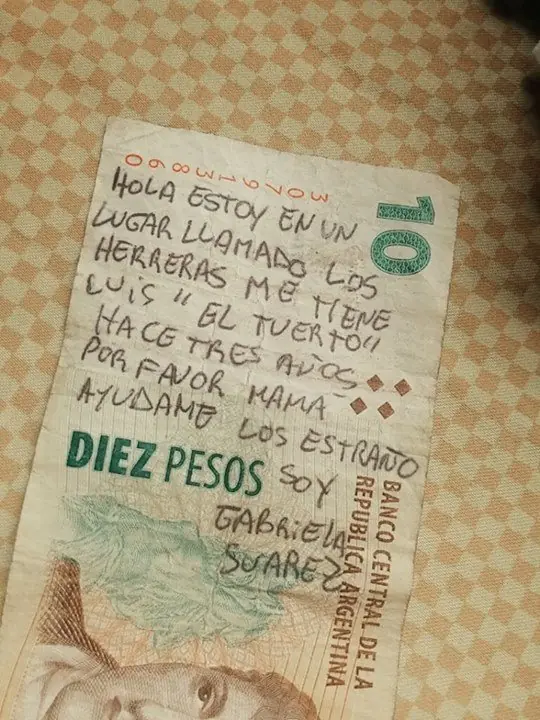 HOLA ESTOY EN UN
LUGAR LLAMADO LOS
HERRERAS ME TIENE
LUIS " EL TUERTO"
HACE TRES AÑOS
POR FAVOR MAMA
AYUDAME LOS ESTRAÑO
SOY
GABRIELA
SUAREZ
10
DIEZ PESOS
BANCO CENTRAL DE LA
REPUBLICA ARGENTINA